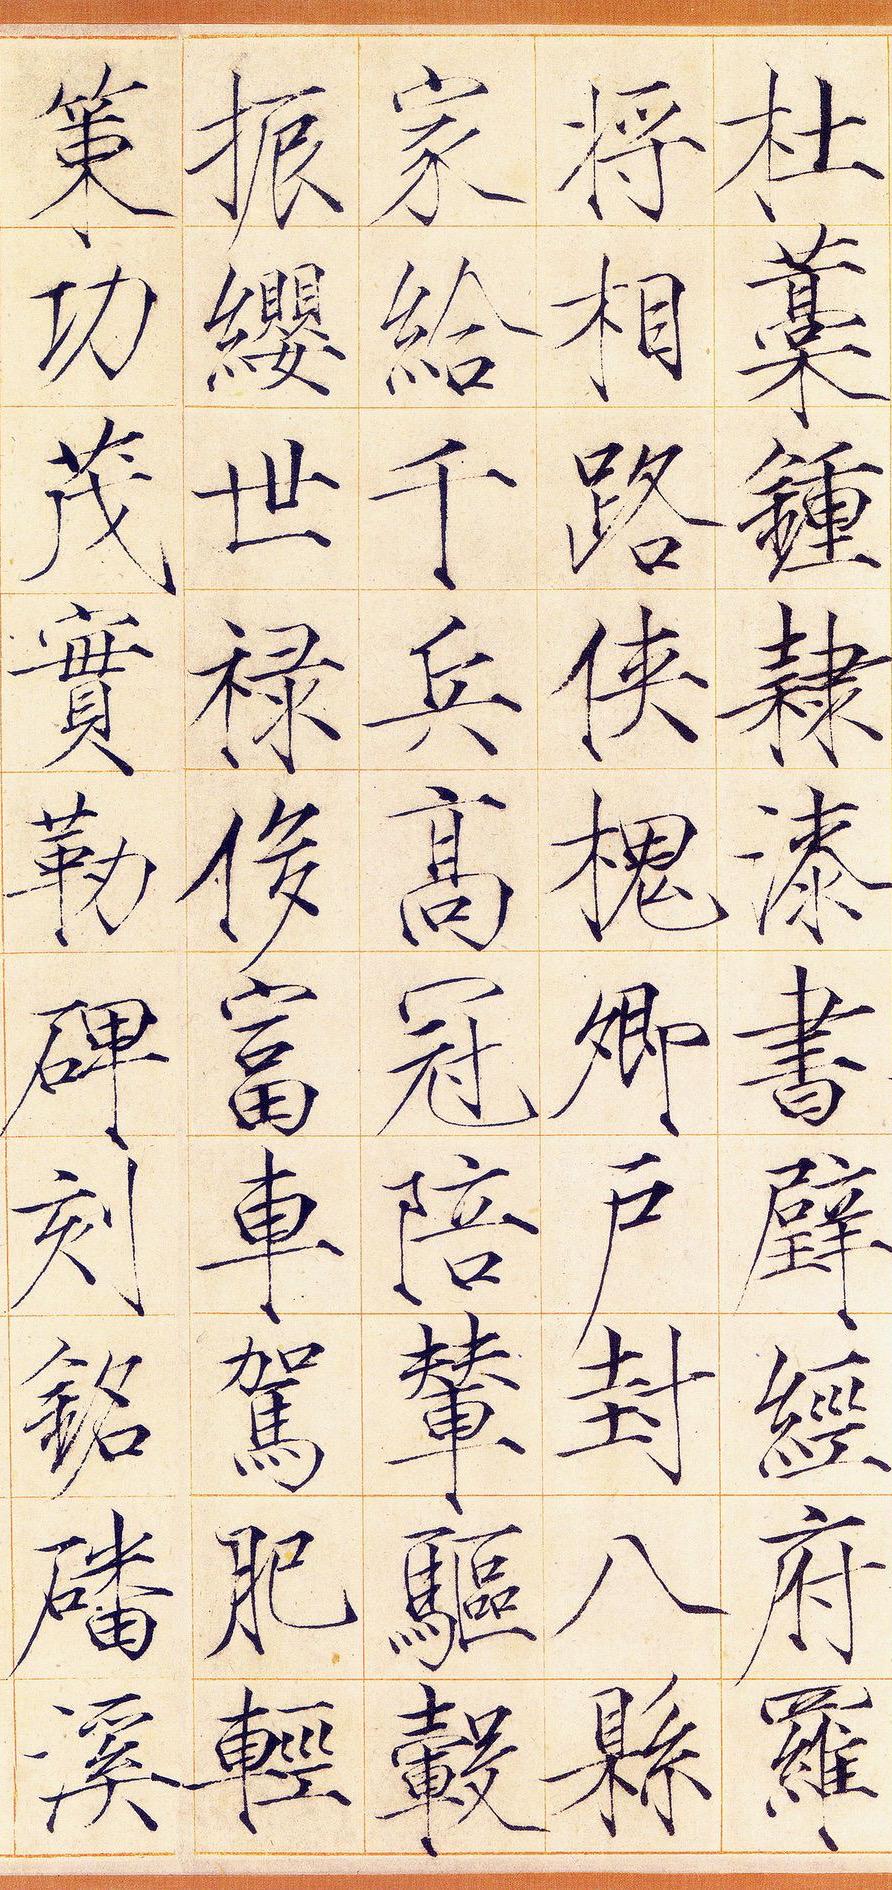 杜藁鍾隸漆書壁經府羅
將相路俠槐卿戶封八縣
家給千兵高冠陪輦驅轂
振纓世祿侈富車駕肥輕
策功茂實勒碑刻銘磻溪